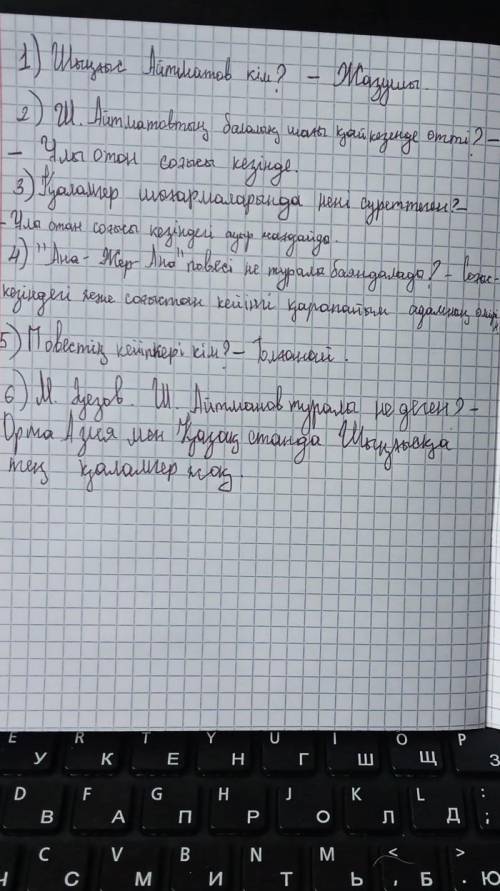 1) Шыңғыс Айтматов кім? – Жазушы.
2) Ш. Айтматовтың балалық шағы қай кезенде өтті? –
– Ұлы отан соғысы кезінде.
3) Қаламгер шығармаларында нені суреттеген? –
– Ұлы отан соғысы кезіндегі ауыр жағдайды.
4) "Ана – Жер – Ана" повесі не туралы баяндалады? – Соғыс-
кезіндегі және соғыстан кейінгі қарапайым адамның өмірі
5) Повестің кейпкері кім? – Толғанай.
6) М. Әуезов Ш. Айтманов турала не деген? –
Орта Азия мен Қазақстанда Шыңғысқа
тең қаламгер жоқ.
E R T Y U I O P
У К Е Н Г Ш Щ З
D F G H J K L :
В А П Р О Л Д ;
C V B N M < >
Ч С М И Т Ь , Б . Ю